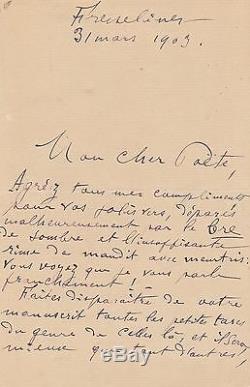 Fresselines
31 mars 1903.
Mon cher Poète,
Agréz tous mes compliments
pour vos jolis vers, déparés
malheureusement par le
de sombre et l'insuffisante
rime de maudit avec mentris.
Vous voyez que je vous parle
franchement !
Faites disparaître de votre
manuscrit toutes les petites taches
du genre de celles là, et il sera
mieux que tant d'autres,